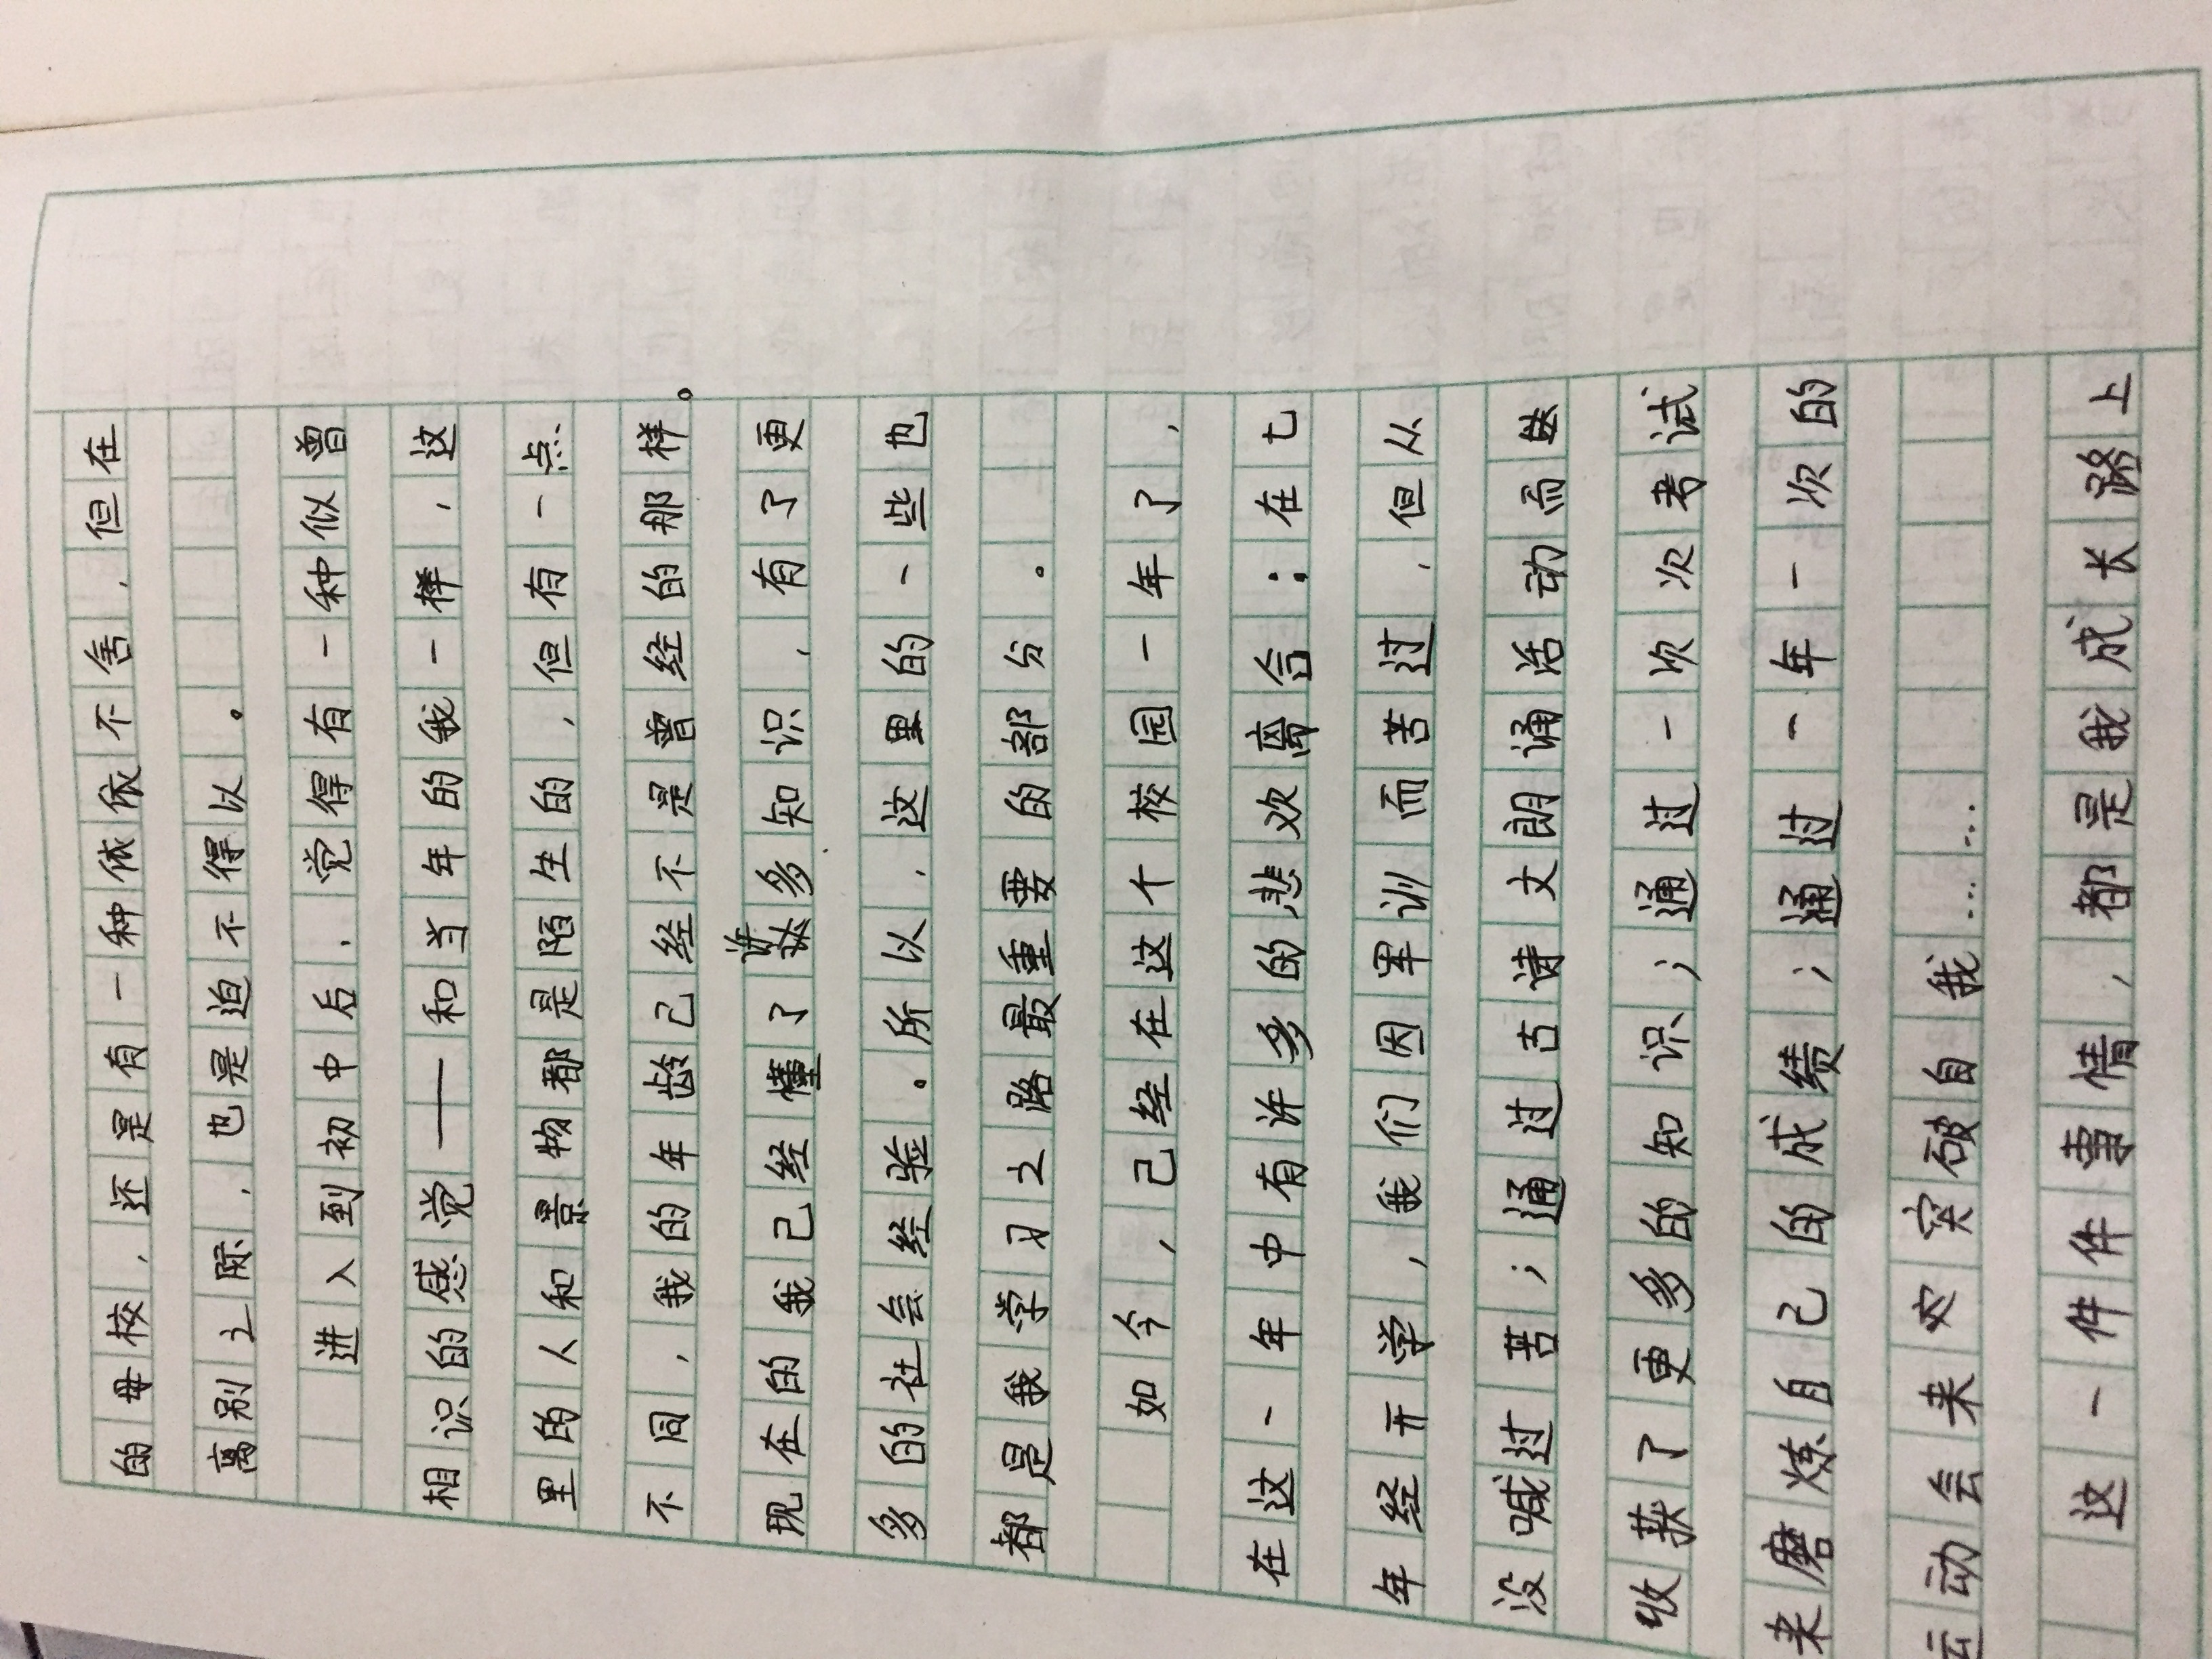 的母校，还是有一种依依不舍，但在
离别之际，也是迫不得以。
进入到初中后，觉得有一种似曾
相识的感觉——和当年的我一样，这
里的人和景物都是陌生的，但有一点
不同，我的年龄已经不是曾经的那样。
现在的我已经懂了许多知识，有了更
多的社会经验。所以，这里的一些也
都是我学习之路最重要的部分。
如今，已经在这个校园一年了，
在这一年中有许多的悲欢离合：在七
年经开学，我们因军训而苦过，但从
没喊过苦；通过古诗文朗诵活动而
收获了更多的知识；通过一次次考试
来磨炼自己的成绩；通过一年一次的
运动会来突破自我……
这一件件事情，都是我成长路上